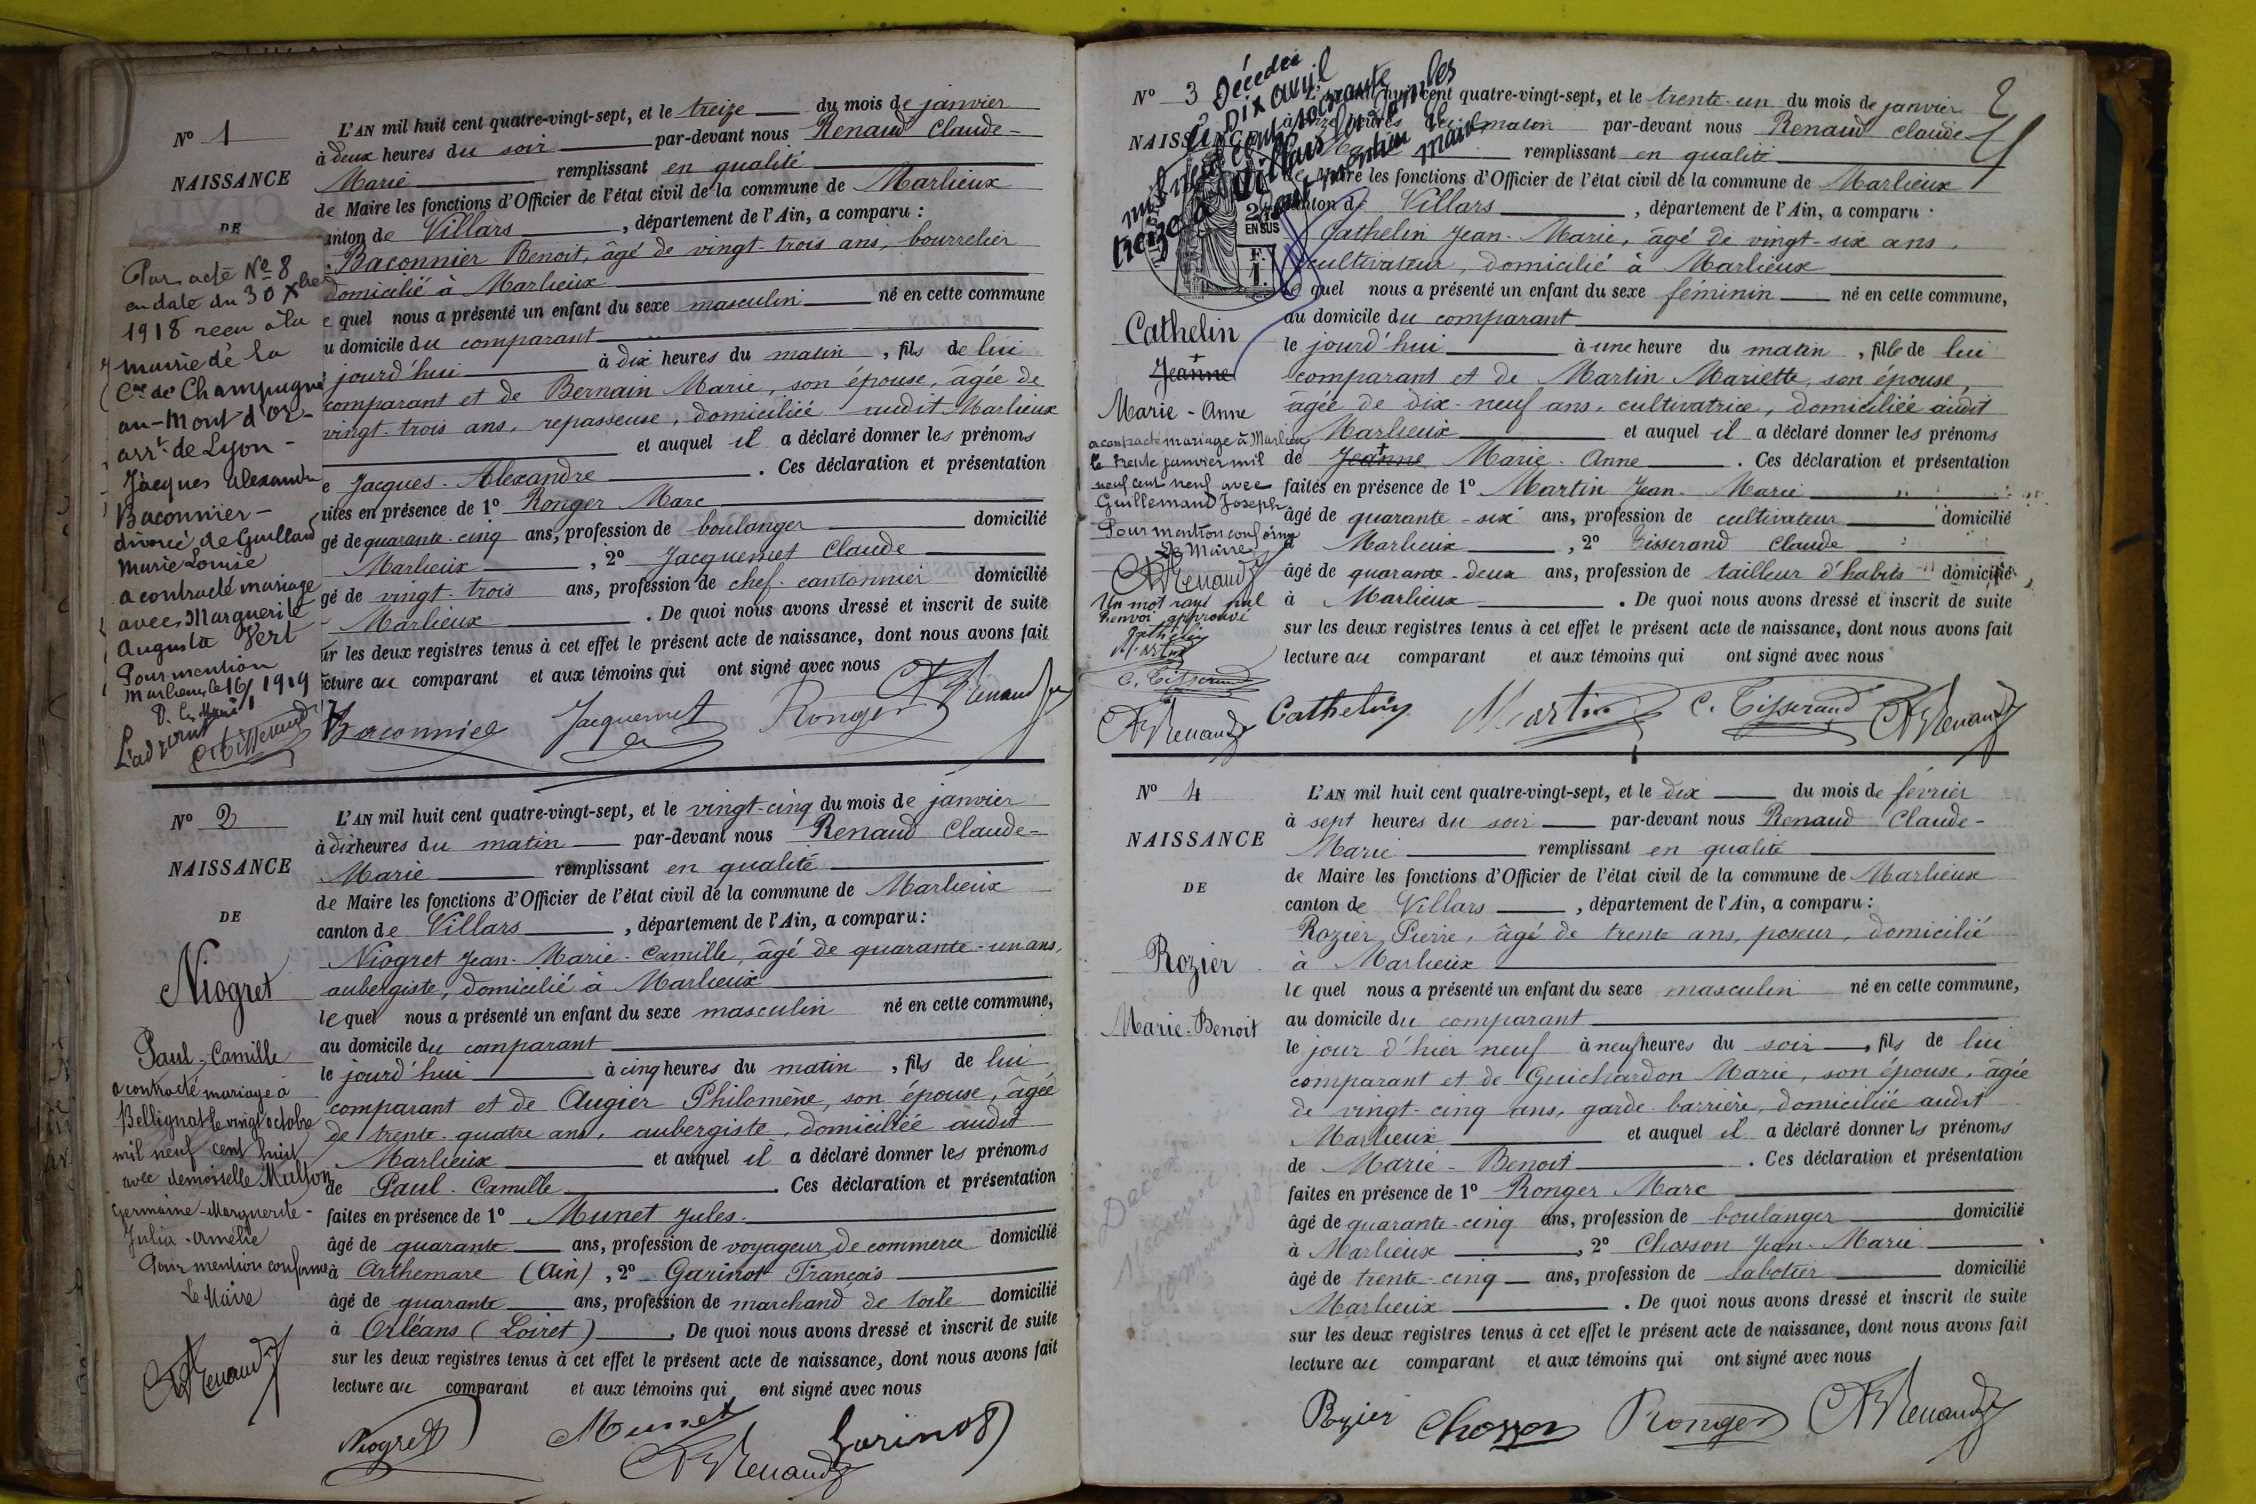 Nº 1
NAISSANCE
DE
Par acte Nº 8
en date du 30 Xbre
1918 reçu à la
mairie de la
Cne de Champagne
au-Mont d'Or-
arrt de Lyon -
Jacques Alexandre
Baconnier -
divorcé de Guilland
Marie Louise
a contracté mariage
avec Marguerite
Augusta Vert
Pour mention
Marlieux le 16/1 1919
P. le Maire
L'adjoint
C. Tisserand
L'AN mil huit cent quatre-vingt-sept, et le treize du mois de janvier
à deux heures du soir par-devant nous Renaud Claude-
Marie remplissant en qualité
de Maire les fonctions d'Officier de l'état civil de la commune de Marlieux
anton de Villars , département de l'Ain, a comparu :
Baconnier Benoit, âgé de vingt-trois ans, bourrelier
domicilié à Marlieux
e quel nous a présenté un enfant du sexe masculin né en cette commune
u domicile du comparant
jourd'hui à dix heures du matin , fils de lui
comparant et de Bernain Marie, son épouse, âgée de
vingt-trois ans, repasseuse, domiciliée audit Marlieux
et auquel il a déclaré donner les prénoms
e Jacques-Alexandre . Ces déclaration et présentation
uites en présence de 1º Ronger Marc
gé de quarante-cinq ans, profession de boulanger domicilié
Marlieux , 2º Jacquemet Claude
gé de vingt-trois ans, profession de chef-cantonnier domicilié
Marlieux . De quoi nous avons dressé et inscrit de suite
ur les deux registres tenus à cet effet le présent acte de naissance, dont nous avons fait
cture au comparant et aux témoins qui ont signé avec nous
Baconnier Jacquemet Ronger Renaud
Nº 2
NAISSANCE
DE
Niogret
Paul-Camille
a contracté mariage à
Bellignat le vingt octobre
mil neuf cent huit
avec demoiselle Multon
Germaine-Marguerite-
Julia-Amélie
Pour mention conforme
Le Maire
Renaud
L'AN mil huit cent quatre-vingt-sept, et le vingt-cinq du mois de janvier
à dix heures du matin par-devant nous Renaud Claude-
Marie remplissant en qualité
de Maire les fonctions d'Officier de l'état civil de la commune de Marlieux
canton de Villars , département de l'Ain, a comparu :
Niogret Jean-Marie-Camille, âgé de quarante-un ans,
aubergiste, domicilié à Marlieux
le quel nous a présenté un enfant du sexe masculin né en cette commune,
au domicile du comparant
le jourd'hui à cinq heures du matin , fils de lui
comparant et de Augier Philomène, son épouse, âgée
de trente-quatre ans, aubergiste, domiciliée audit
Marlieux et auquel il a déclaré donner les prénoms
de Paul-Camille . Ces déclaration et présentation
faites en présence de 1º Munet Jules
âgé de quarante ans, profession de voyageur de commerce domicilié
à Arthemare (Ain) , 2º Garinot François
âgé de quarante ans, profession de marchand de toile domicilié
à Orléans (Loiret) . De quoi nous avons dressé et inscrit de suite
sur les deux registres tenus à cet effet le présent acte de naissance, dont nous avons fait
lecture au comparant et aux témoins qui ont signé avec nous
Niogret Munet Renaud Garinot
2
Nº 3
NAISSANCE
Décédée
le Dix avril
mil neuf cent soixante
treize à Villars les Dombes
dont mention le
maire
2/10
EN SUS
F.
1.
Cathelin
Jeanne
Marie-Anne
a contracté mariage à Marlieux
le trente janvier mil
neuf cent neuf avec
Guillemand Joseph
Pour mention conforme
Le Maire
Renaud
Un mot rayé nul
Renvoi approuvé
Cathelin
Martin
C. Tisserand
Renaud
L'AN mil huit cent quatre-vingt-sept, et le trente-un du mois de janvier
à onze heures du matin par-devant nous Renaud Claude
Marie remplissant en qualité
de Maire les fonctions d'Officier de l'état civil de la commune de Marlieux
canton de Villars , département de l'Ain, a comparu :
Cathelin Jean-Marie, âgé de vingt-six ans,
cultivateur, domicilié à Marlieux
le quel nous a présenté un enfant du sexe féminin né en cette commune,
au domicile du comparant
le jourd'hui à une heure du matin , fille de lui
comparant et de Martin Mariette, son épouse,
âgée de dix-neuf ans, cultivatrice, domiciliée audit
Marlieux et auquel il a déclaré donner les prénoms
de Jeanne Marie-Anne . Ces déclaration et présentation
faites en présence de 1º Martin Jean-Marie
âgé de quarante-six ans, profession de cultivateur domicilié
à Marlieux , 2º Tisserand Claude
âgé de quarante-deux ans, profession de tailleur d'habits domicilié
à Marlieux . De quoi nous avons dressé et inscrit de suite
sur les deux registres tenus à cet effet le présent acte de naissance, dont nous avons fait
lecture au comparant et aux témoins qui ont signé avec nous
Cathelin Martin C. Tisserand Renaud
Nº 4
NAISSANCE
DE
Rozier
Marie-Benoit
L'AN mil huit cent quatre-vingt-sept, et le dix du mois de février
à sept heures du soir par-devant nous Renaud Claude-
Marie remplissant en qualité
de Maire les fonctions d'Officier de l'état civil de la commune de Marlieux
canton de Villars , département de l'Ain, a comparu :
Rozier Pierre, âgé de trente ans, poseur, domicilié
à Marlieux
le quel nous a présenté un enfant du sexe masculin né en cette commune,
au domicile du comparant
le jour d'hier neuf à neuf heures du soir , fils de lui
comparant et de Guichardon Marie, son épouse, âgée
de vingt-cinq ans, garde-barrière, domiciliée audit
Marlieux et auquel il a déclaré donner ls prénoms
de Marie-Benoit . Ces déclaration et présentation
faites en présence de 1º Ronger Marc
âgé de quarante-cinq ans, profession de boulanger domicilié
à Marlieux , 2º Chosson Jean-Marie
âgé de trente-cinq ans, profession de sabotier domicilié
Marlieux . De quoi nous avons dressé et inscrit de suite
sur les deux registres tenus à cet effet le présent acte de naissance, dont nous avons fait
lecture au comparant et aux témoins qui ont signé avec nous
Rozier Chosson Ronger Renaud